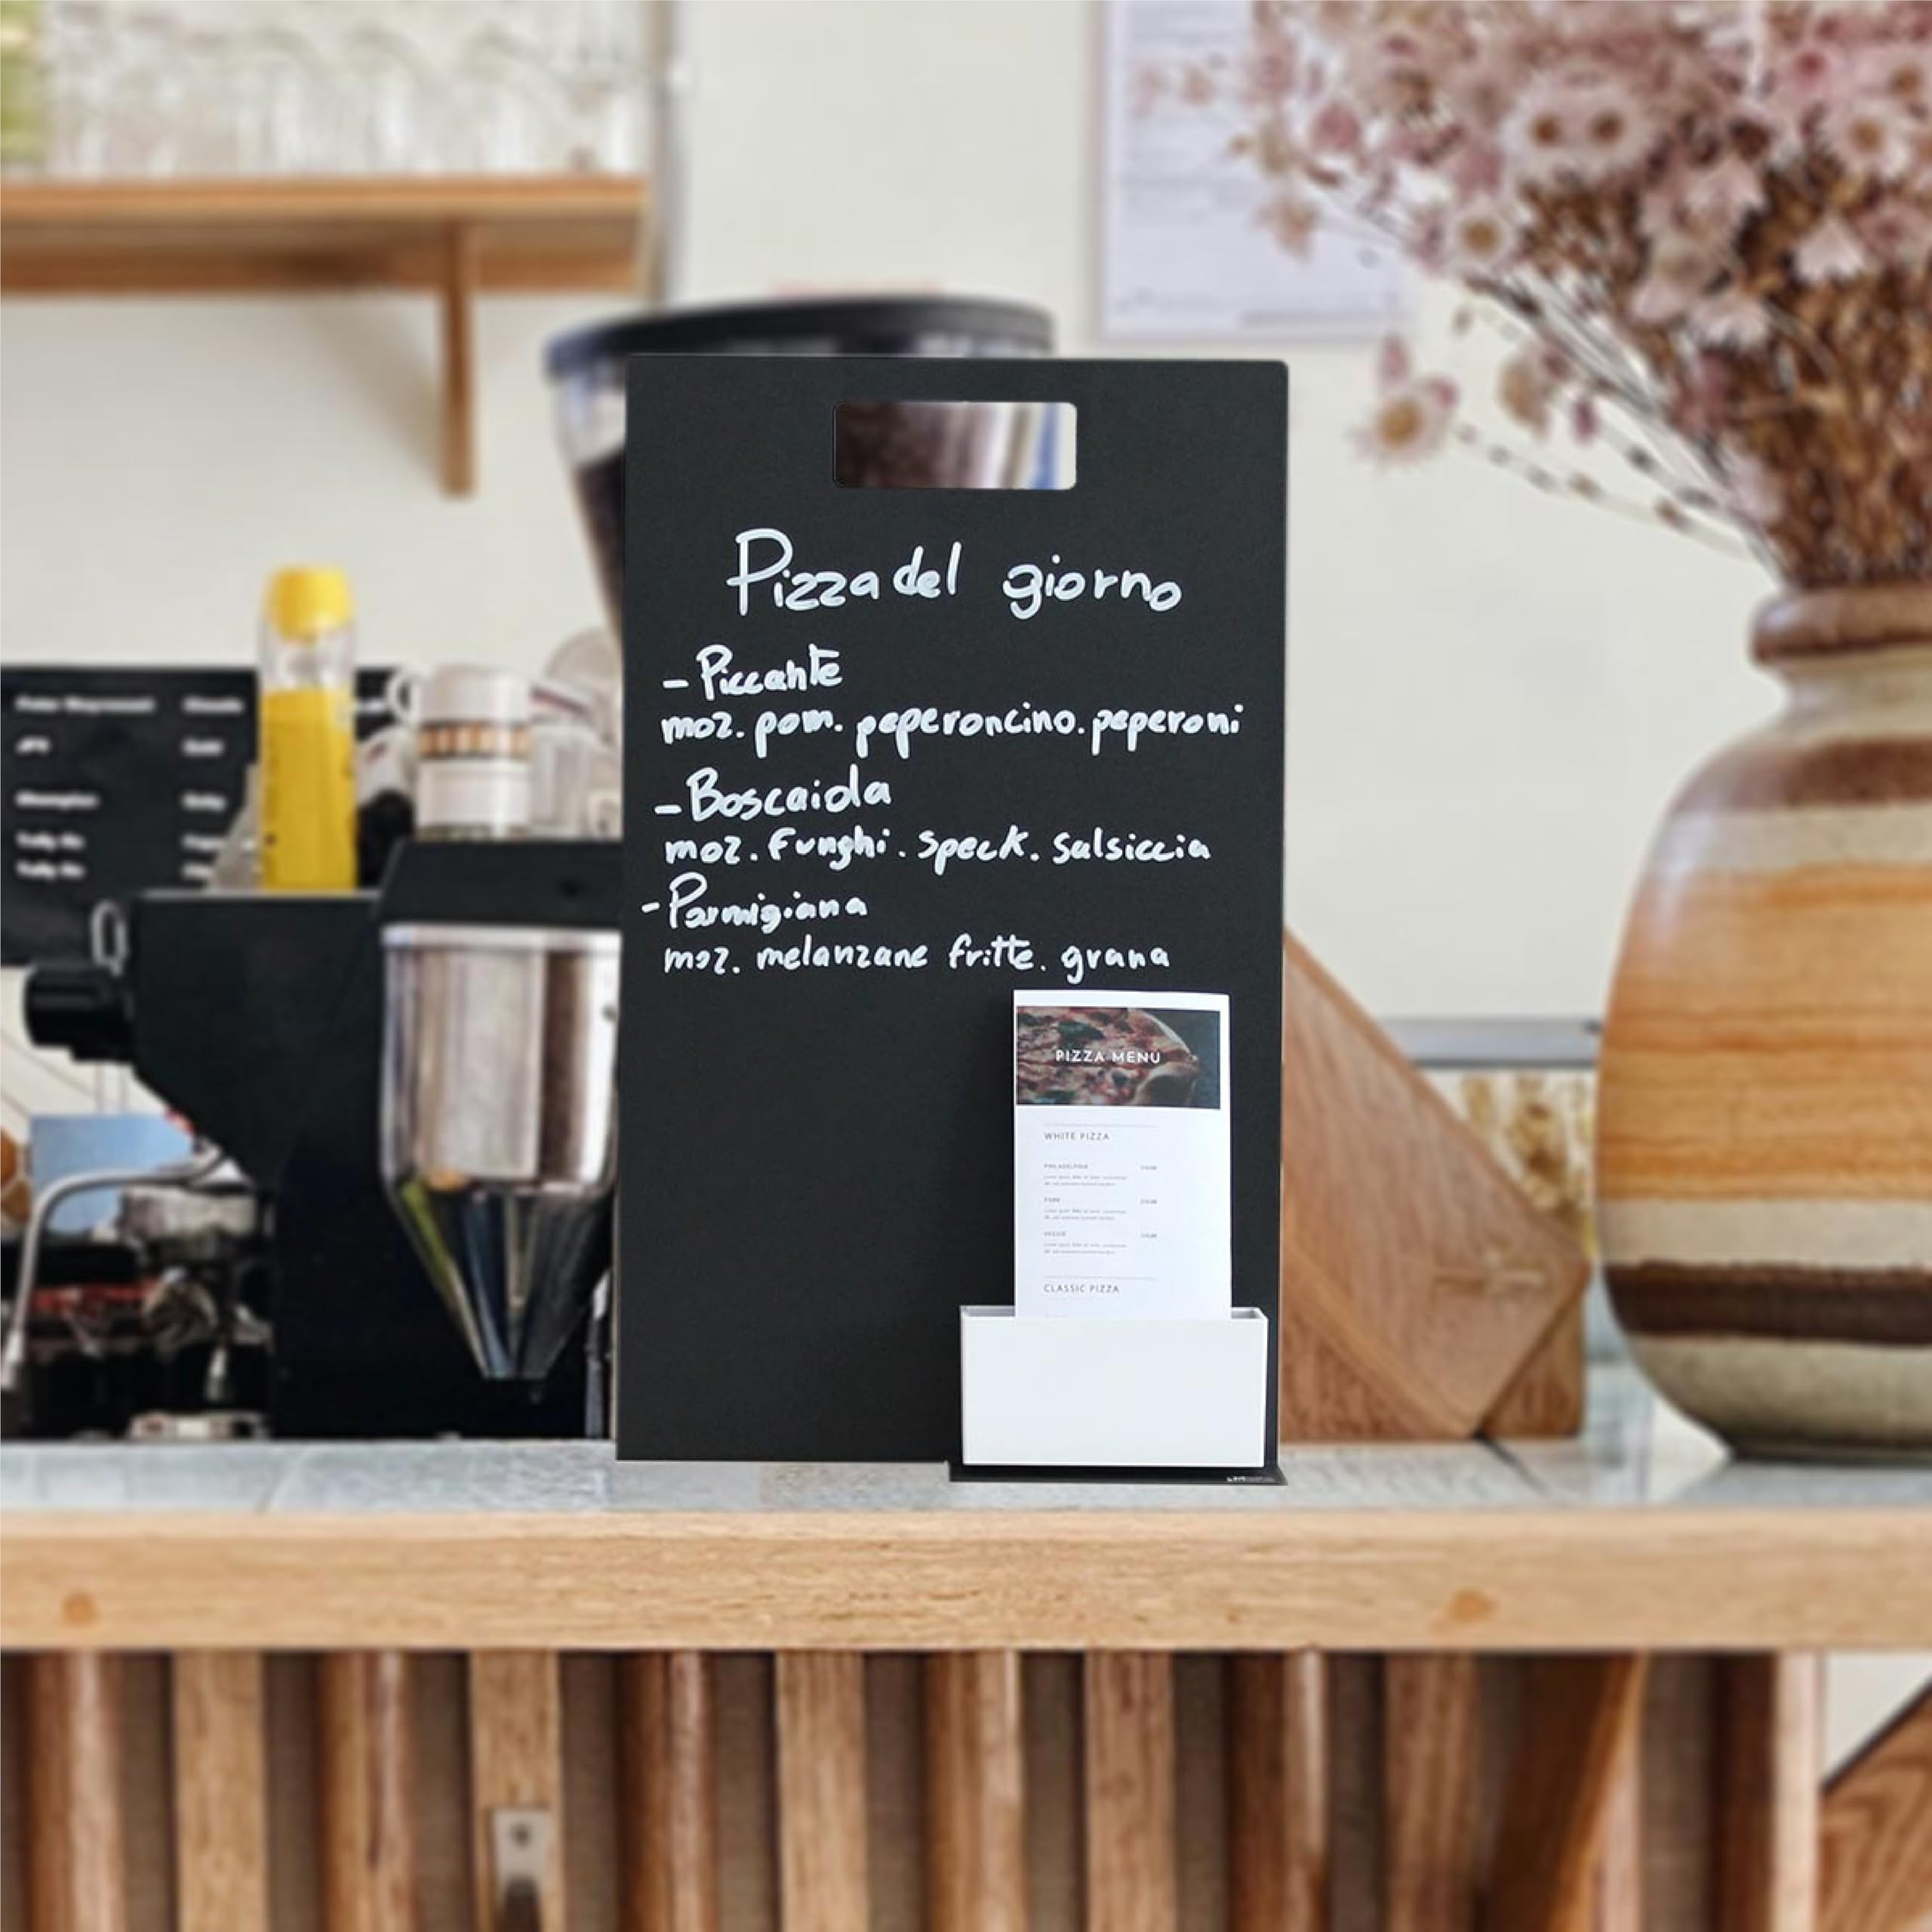 Pizza del giorno
- Piccante
moz. pom. peperoncino. peperoni
- Boscaiola
moz. funghi. speck. salsiccia
- Parmigiana
moz. melanzane fritte. grana
PIZZA MENU
WHITE PIZZA
PHILADELPHIA
PORK
VEGGIE
CLASSIC PIZZA